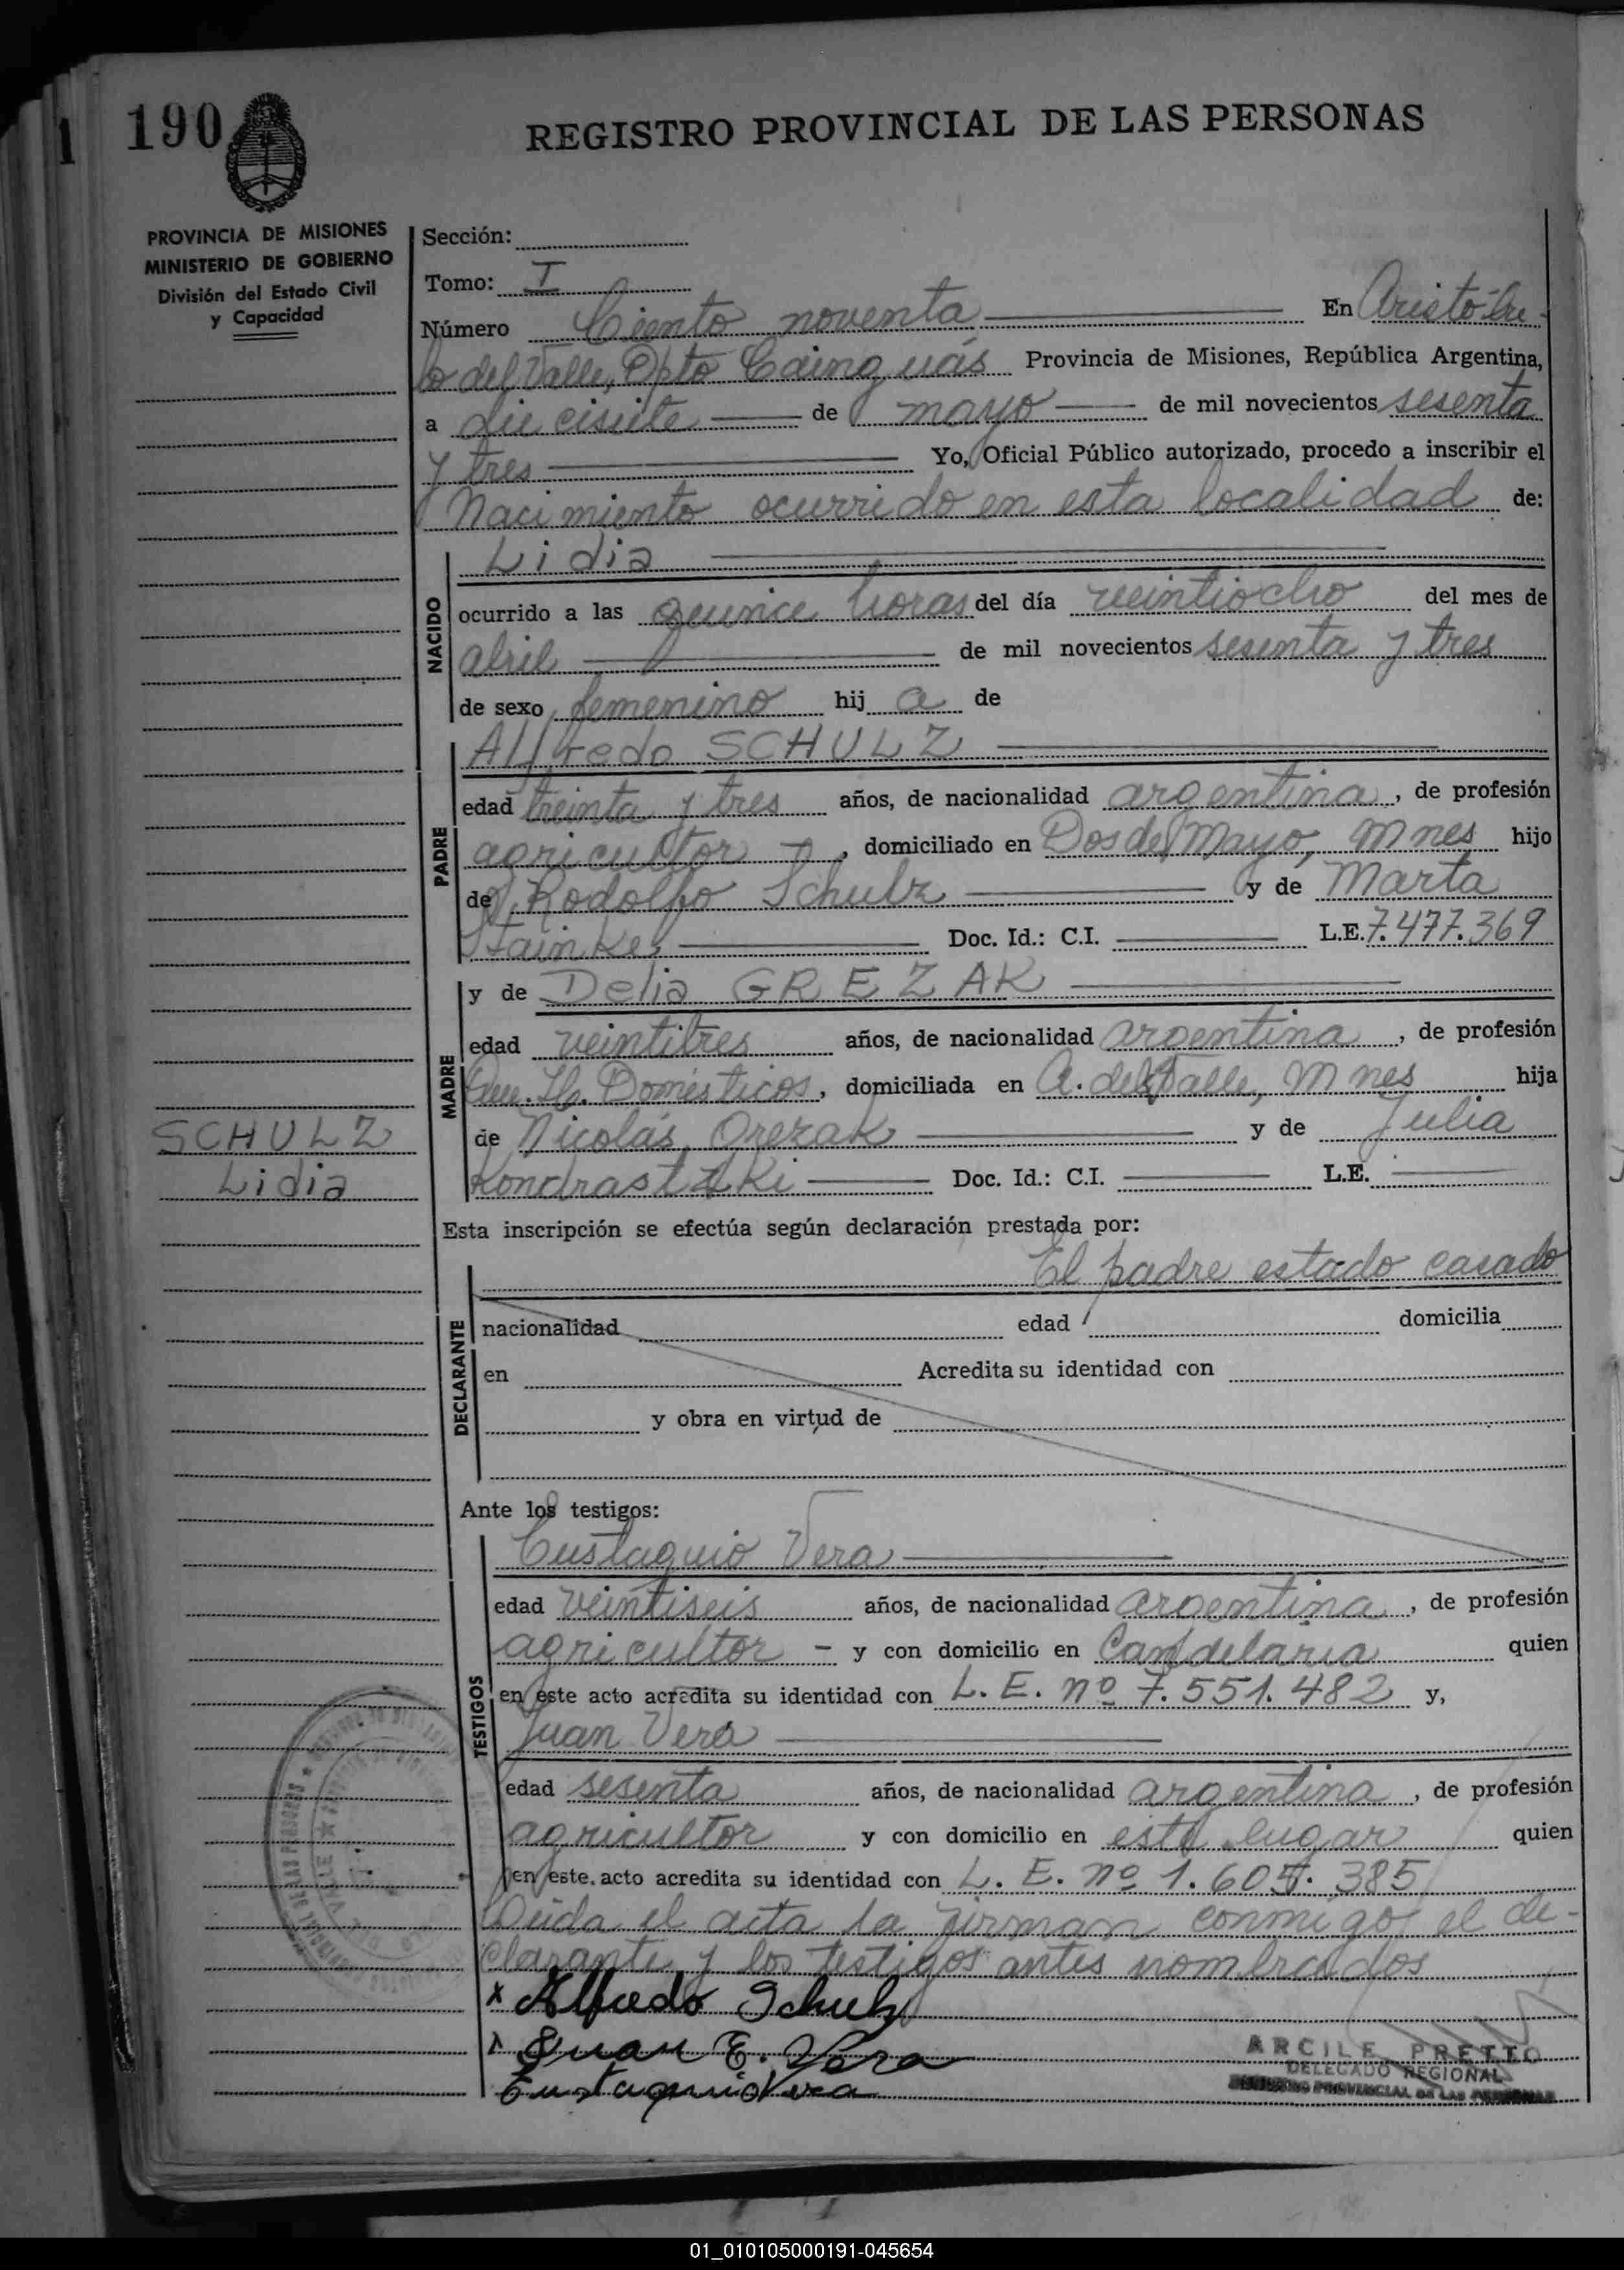 190
REGISTRO PROVINCIAL DE LAS PERSONAS
PROVINCIA DE MISIONES
MINISTERIO DE GOBIERNO
División del Estado Civil
y Capacidad
Sección:
Tomo: I
Número Ciento noventa En Aristóbu-
lo del Valle, Dpto Cainguás Provincia de Misiones, República Argentina,
a diecisiete de mayo de mil novecientos sesenta
y tres Yo, Oficial Público autorizado, procedo a inscribir el
Nacimiento ocurrido en esta localidad de:
NACIDO
Lidia
ocurrido a las quince horas del día veintiocho del mes de
abril de mil novecientos sesenta y tres
de sexo femenino hij a de
PADRE
Alfredo SCHULZ
edad treinta y tres años, de nacionalidad argentina, de profesión
agricultor, domiciliado en Dos de Mayo, Mnes hijo
de Rodolfo Schulz y de Marta
Stainke Doc. Id.: C.I. L.E. 7.477.369
MADRE
y de Delia GREZAK
edad veintitres años, de nacionalidad argentina, de profesión
Domésticos, domiciliada en A. del Valle, Mnes hija
de Nicolás Grezak y de Julia
Doc. Id.: C.I. L.E.
SCHULZ
Lidia
Esta inscripción se efectúa según declaración prestada por:
El padre estado casado
DECLARANTE
nacionalidad edad domicilia
en Acredita su identidad con
y obra en virtud de
Ante los testigos:
TESTIGOS
Eustaquio Vera
edad veintiseis años, de nacionalidad argentina, de profesión
agricultor - y con domicilio en Candelaria quien
en este acto acredita su identidad con L. E. nº 7.551.482 y,
Juan Vera
edad sesenta años, de nacionalidad argentina, de profesión
agricultor y con domicilio en este lugar quien
en este acto acredita su identidad con L. E. nº 1.605.385
Leida el acta la firman conmigo el de-
clarante y los testigos antes nombrados
x Alfredo Schulz
Juan E. Vera
Eustaquio Vera
ARCILE PRETTO
DELEGADO REGIONAL
REGISTRO PROVINCIAL DE LAS PERSONAS
01_010105000191-045654